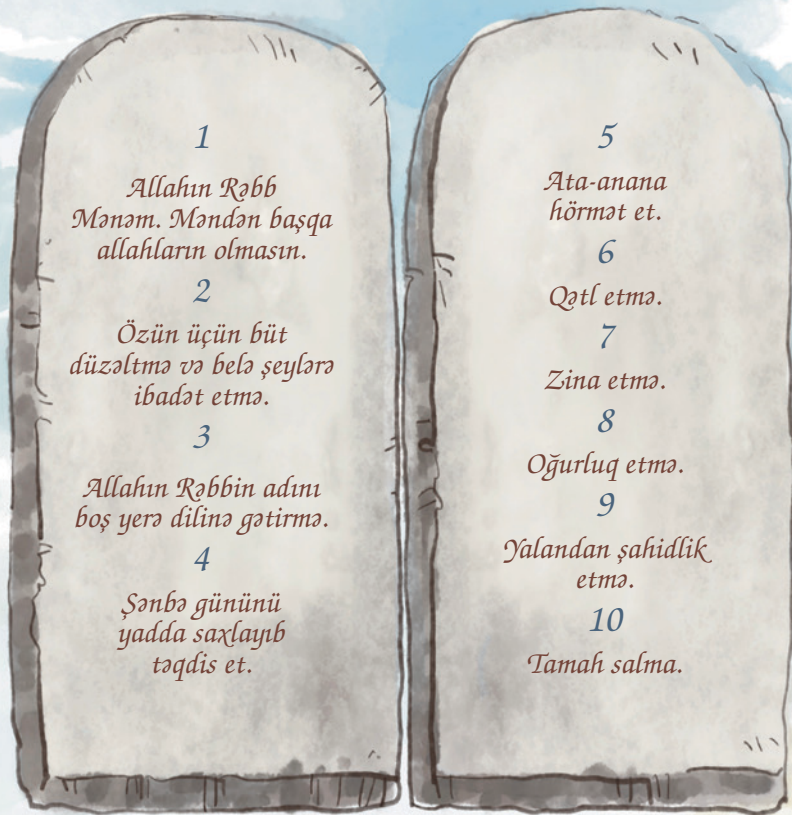 1
Allahın Rəbb
Mənəm. Məndən başqa
allahların olmasın.
2
Özün üçün büt
düzəltmə və belə şeylərə
ibadət etmə.
3
Allahın Rəbbin adını
boş yerə dilinə gətirmə.
4
Şənbə gününü
yadda saxlayıb
təqdis et.
5
Ata-anana
hörmət et.
6
Qətl etmə.
7
Zina etmə.
8
Oğurluq etmə.
9
Yalandan şahidlik
etmə.
10
Tamah salma.